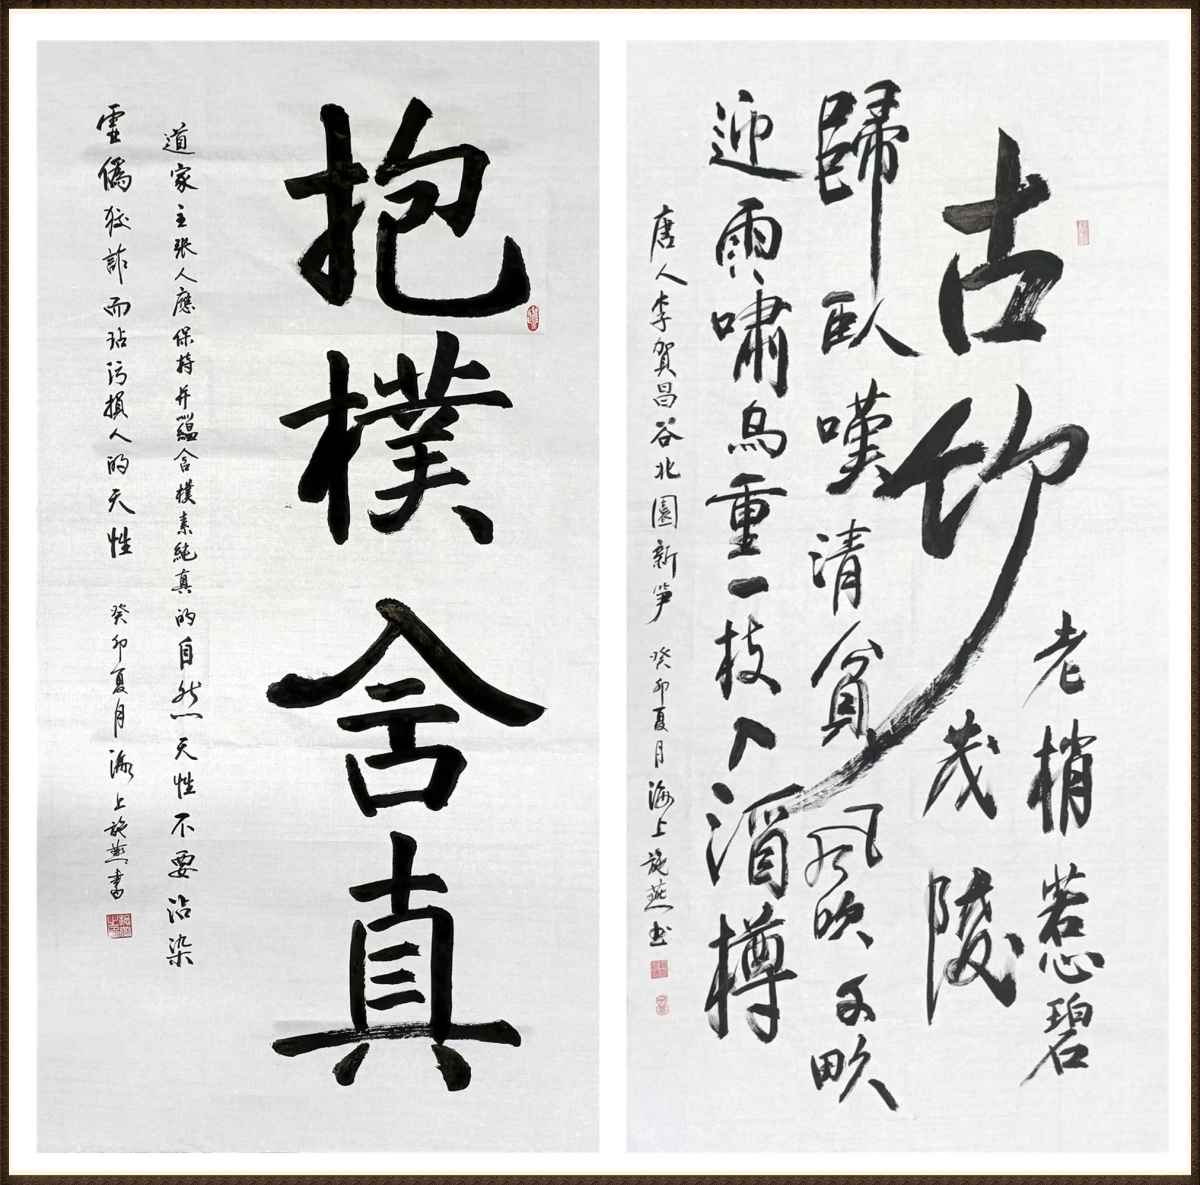 古竹
老梢惹碧
茂陵
歸臥嘆清貧風吹畝
迎雨嘯鳥重一枝入酒樽
唐人李賀昌谷北園新筍 癸卯夏月海上施燕书
抱樸含真
道家主張人應保持并蘊含樸素純真的自然天性不要沾染
虛僞狡詐而玷污損人的天性 癸卯夏月海上施燕書